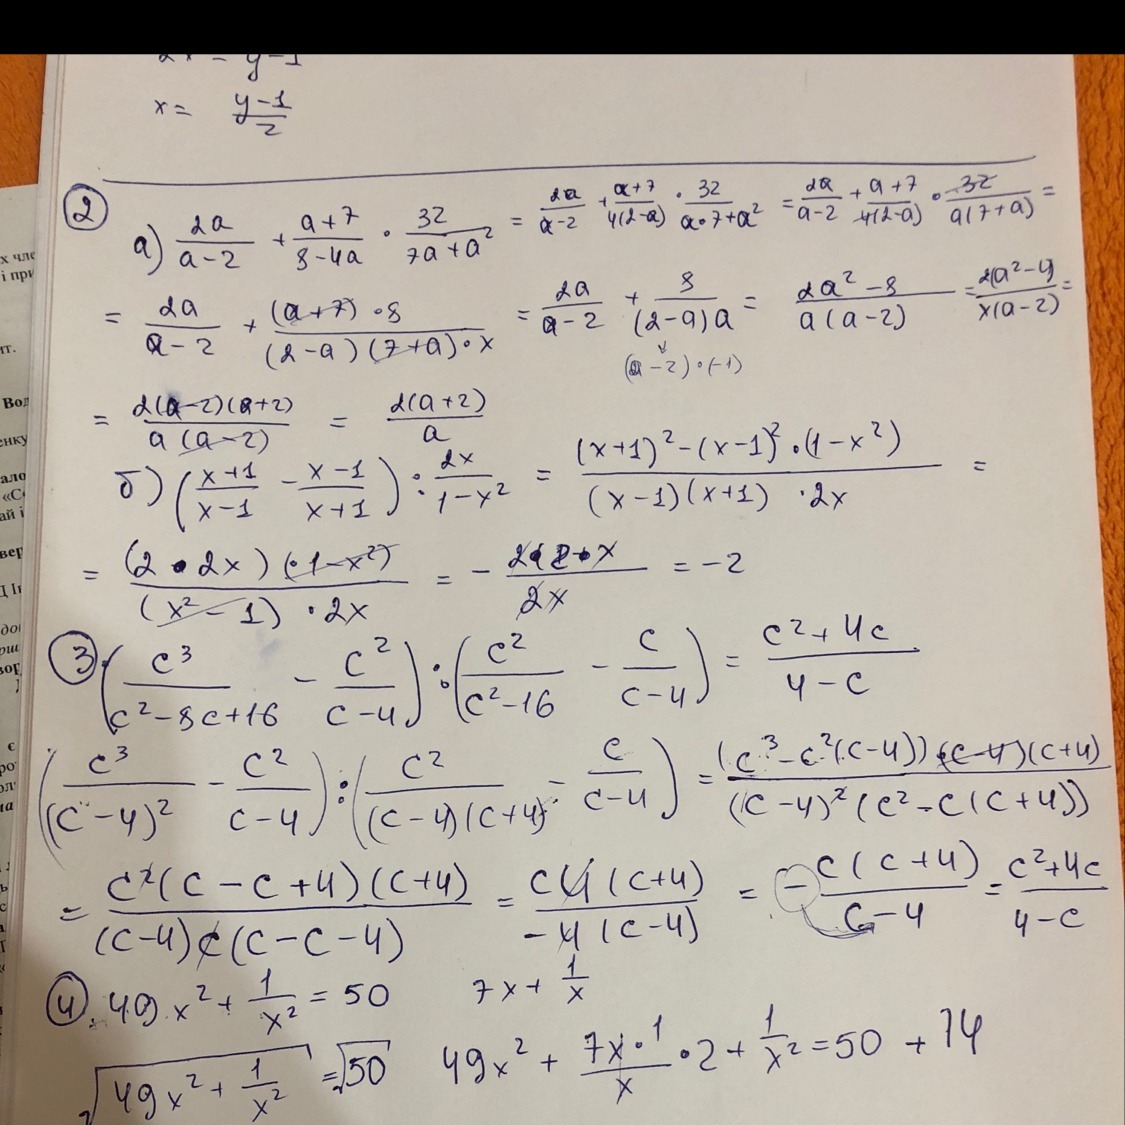 2x = y-1
x = \frac{y-1}{2}
② а) \frac{2a}{a-2} + \frac{a+7}{8-4a} · \frac{32}{7a+a^2} = \frac{2a}{a-2} + \frac{a+7}{4(2-a)} · \frac{32}{a·7+a^2} = \frac{2a}{a-2} + \frac{a+7}{4(2-a)} · \frac{32}{a(7+a)} =
= \frac{2a}{a-2} + \frac{(a+7)·8}{(2-a)(7+a)·x} = \frac{2a}{a-2} + \frac{8}{(2-a)a} = \frac{2a^2-8}{a(a-2)} = \frac{2(a^2-4)}{x(a-2)} =
(a-2)·(-1)
= \frac{2(a-2)(a+2)}{a(a-2)} = \frac{2(a+2)}{a}
б) (\frac{x+1}{x-1} - \frac{x-1}{x+1}) : \frac{2x}{1-x^2} = \frac{(x+1)^2-(x-1)^2·(1-x^2)}{(x-1)(x+1)·2x} =
= \frac{(2·2x)(·1-x^2)}{(x^2-1)·2x} = - \frac{2·2·x}{2x} = -2
③ (\frac{c^3}{c^2-8c+16} - \frac{c^2}{c-4}) : (\frac{c^2}{c^2-16} - \frac{c}{c-4}) = \frac{c^2+4c}{4-c}
(\frac{c^3}{(c-4)^2} - \frac{c^2}{c-4}) : (\frac{c^2}{(c-4)(c+4)} - \frac{c}{c-4}) = \frac{(c^3-c^2(c-4))(c-4)(c+4)}{(c-4)^2(c^2-c(c+4))}
= \frac{c^2(c-c+4)(c+4)}{(c-4)c(c-c-4)} = \frac{c4(c+4)}{-4(c-4)} = - \frac{c(c+4)}{c-4} = \frac{c^2+4c}{4-c}
④. 49x^2 + \frac{1}{x^2} = 50 7x + \frac{1}{x}
\sqrt{49x^2 + \frac{1}{x^2}} = \sqrt{50} 49x^2 + \frac{7x·1}{x}·2 + \frac{1}{x^2} = 50 + 14